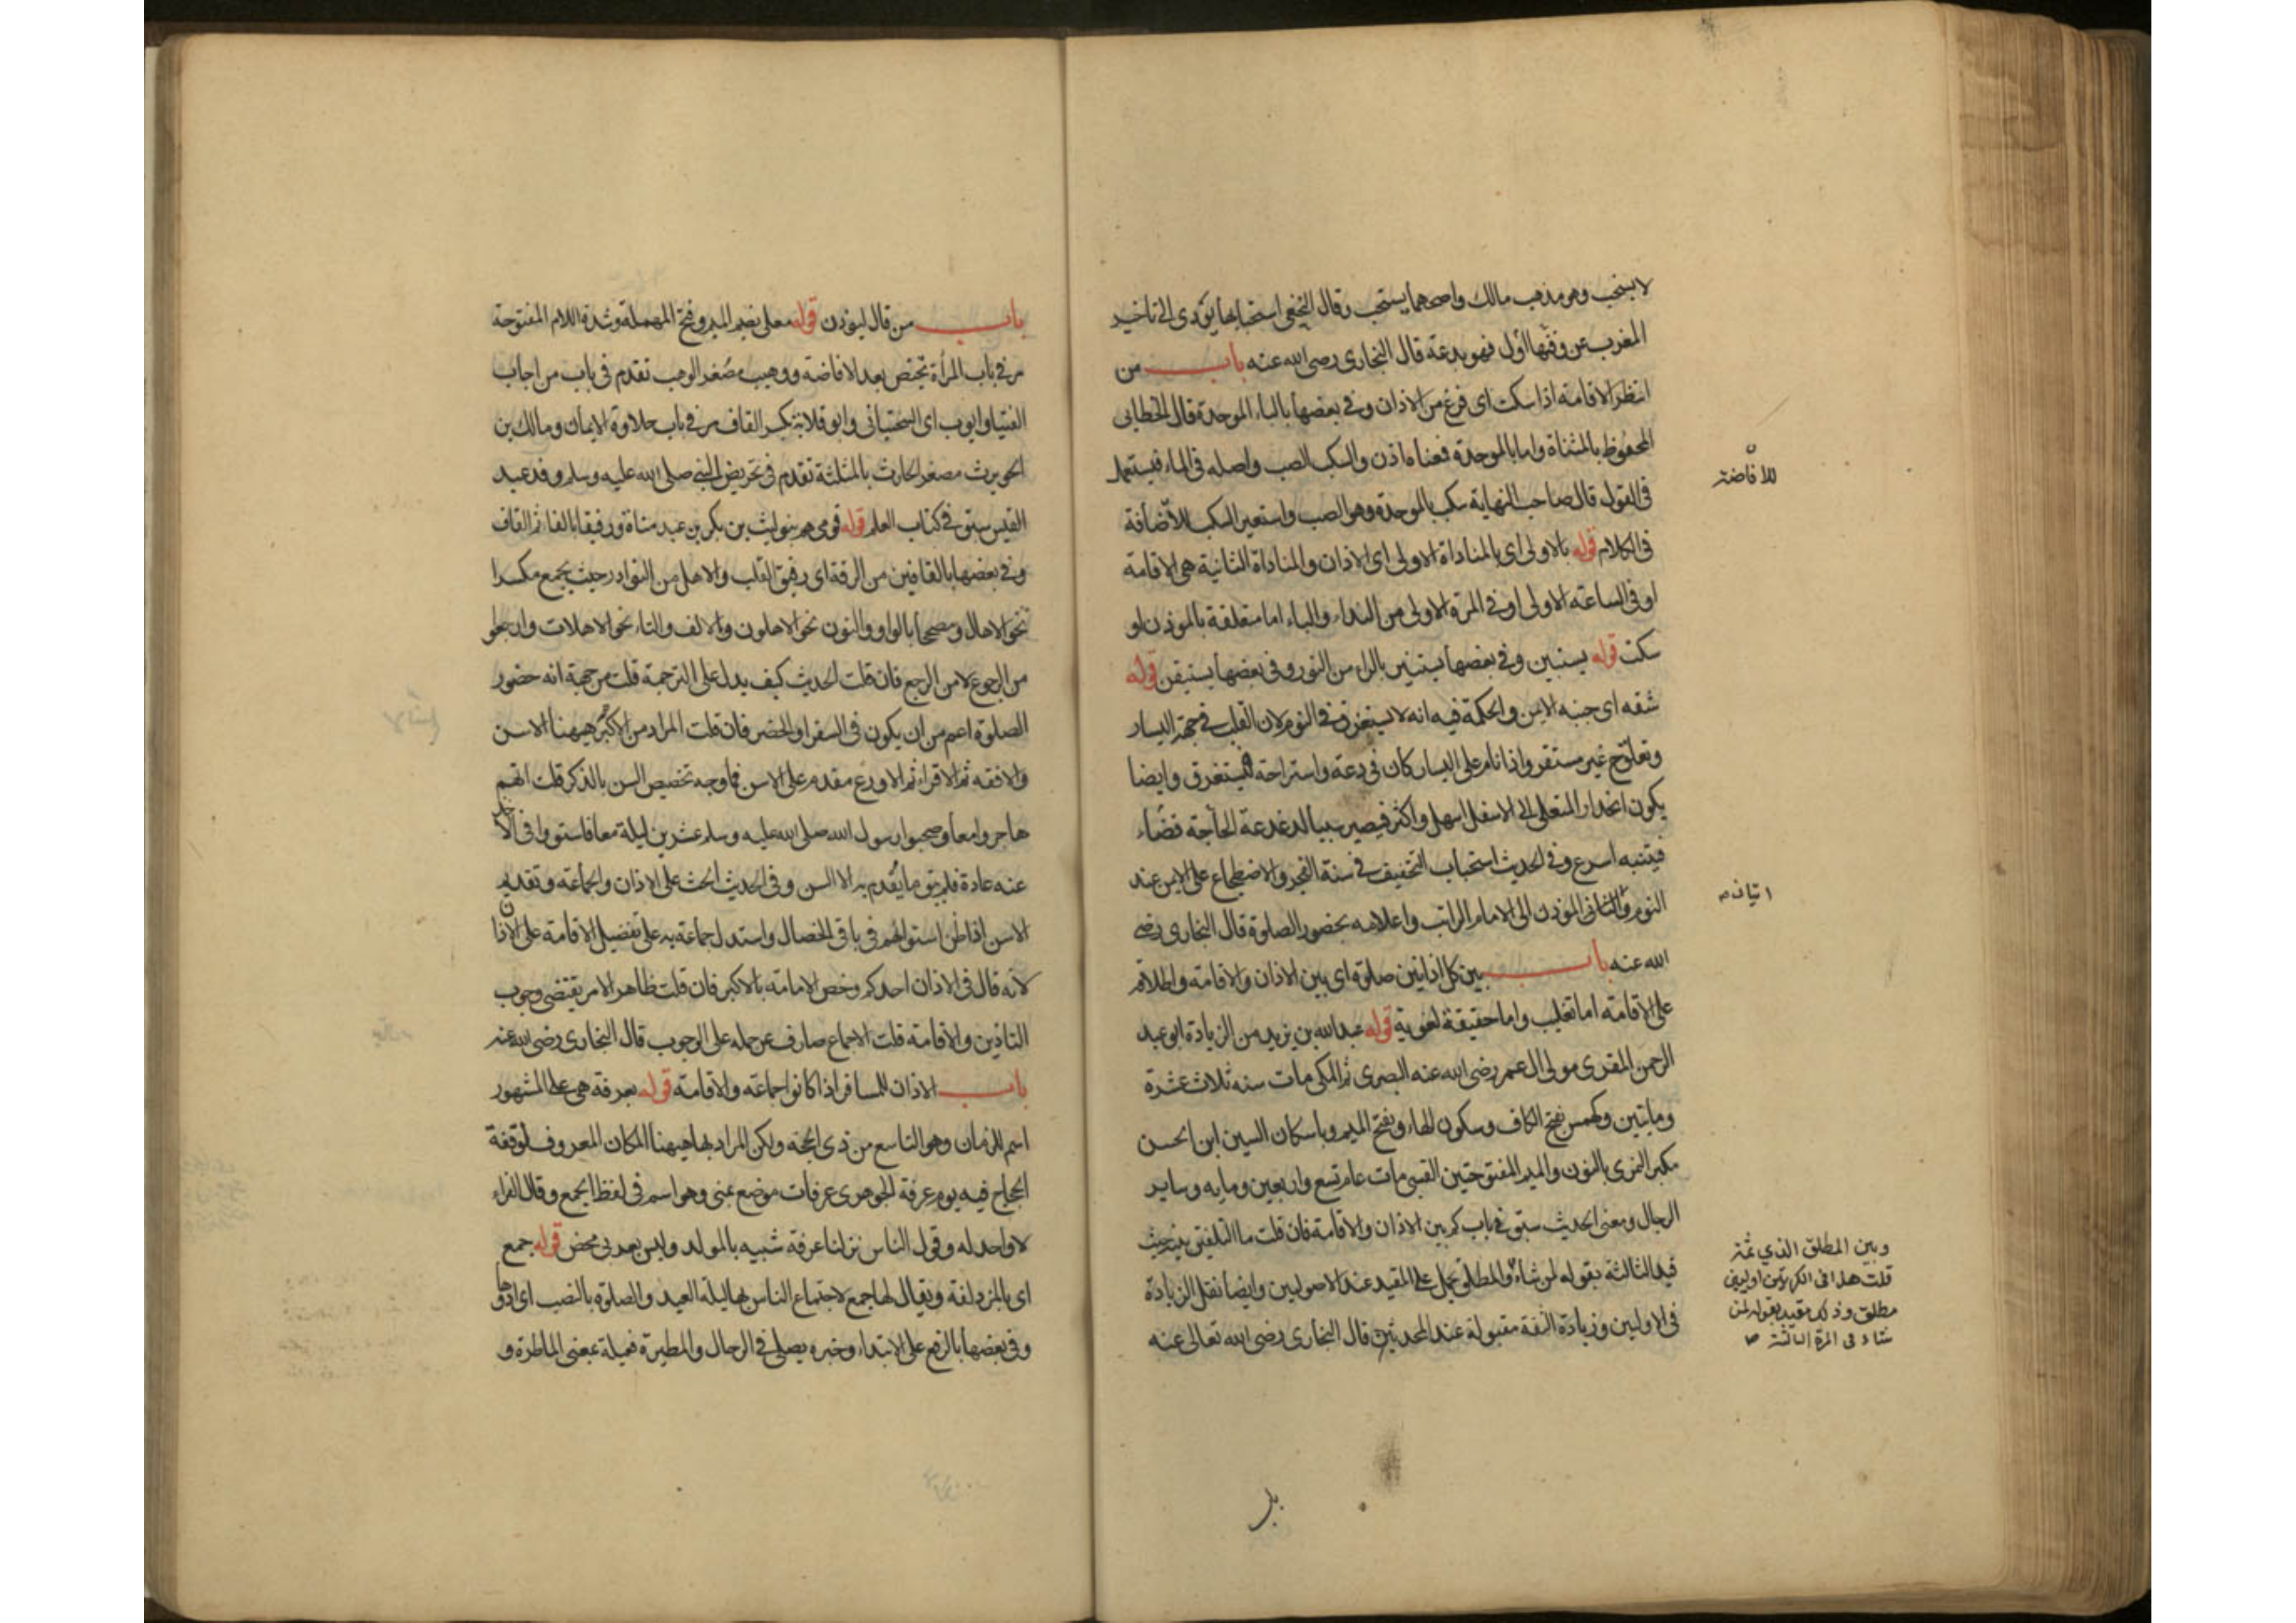 لا يستحب وهو مذهب مالك واصحهما يستحب وقال النخعي استحبابها يؤدى الى تاخير
المغرب عن وقتها الاول فهو بدعة قال البخارى رضى الله عنه باب من
انتظر الاقامة اذا سكت اى فرغ من الاذان وفى بعضها بالباء الموحدة قال الخطابى
المحفوظ بالمثناة واما بالموحدة فمعناه اذن والسكب الصب واصله فى الماء فيستعمل
فى القول قال صاحب النهاية سكب بالموحدة وهو الصب واستعير السكب للاضافة
فى الكلام قوله بالاولى اى بالمناداة الاولى اى الاذان والمناداة الثانية هى الاقامة
او فى الساعة الاولى او فى المرة الاولى من النداء والباء اما متعلقة بالموذن او
سكت قوله يستبين وفى بعضها يستنير بالراء من النور وفى بعضها يستيقن قوله
شقه اى جنبه الايمن والحكمة فيه انه لا يستغرق فى النوم لان القلب فى جهة اليسار
وتعلق ح غير مستقر واذا نام على اليسار كان فى دعة واستراحة فيستغرق وايضا
يكون انحدار المتعلى الى الاسفل اسهل واكثر فيصير سببا لدغدغة الحاجة قضاء
فينتبه اسرع وفى الحديث استحباب التخفيف فى سنة الفجر والاضطجاع على الايمن عند
النوم والثانى الموذن الى الامام الراتب واعلامه بحضور الصلوة قال البخارى رضى
الله عنه باب بين كل اذانين صلوة اى بين الاذان والاقامة واطلاقه
على الاقامة اما تغليب واما حقيقة لغوية قوله عبد الله بن يزيد من الزيادة ابو عبد
الرحمن المقرى مولى ال عمر رضى الله عنه البصرى ثم المكى مات سنه ثلاث عشرة
ومايتين وكهمس بفتح الكاف وسكون الهاء وبفتح الميم وباسكان السين ابن الحسن
مكبر النمرى بالنون والميم المفتوحتين القيسى مات عام تسع واربعين ومايه وساير
الرجال ومعنى الحديث سبق فى باب كم بين الاذان والاقامة فان قلت ما التلفيق بينه حيث
قيد الثالثة بقوله لمن شاء والمطلق يحمل على المقيد عند الاصوليين وايضا نقل الزيادة
فى الاوليين وزيادة الثقة مقبولة عند المحدثين قال البخارى رضى الله تعالى عنه
للافاضة
اتيان
وبين المطلق الذي ثمة
قلت هذا فى الكرتين اوليين
مطلق وذلك مقيد بقوله لمن
شاء فى المرة الثالثة
باب من قال ليوذن قوله معلى بضم الميم وفتح المهملة وشدة اللام المفتوحة
مر فى باب المرأة تحيض بعد الافاضة ووهيب مصغر الوهب تقدم فى باب من اجاب
الفتيا وايوب اى السختيانى وابو قلابة بكسر القاف مر فى باب حلاوة الايمان ومالك بن
الحويرث مصغر الحارث بالمثلثة تقدم فى تحريض النبي صلى الله عليه وسلم وفد عبد
القيس سبق فى كتاب العلم قوله قومى هم بنو ليث بن بكر بن عبد مناة ورفيقا بالفاء ثم القاف
وفى بعضها بالقافين من الرقة اى رقيق القلب والاهل من النوادر حيث يجمع مكسرا
نحو الاهال ومصححا بالواو والنون نحو الاهلون والالف والتاء نحو الاهلات وارجعوا
من الرجوع لا من الرجع فان قلت الحديث كيف يدل على الترجمة قلت من جهة انه حضور
الصلوة اعم من ان يكون فى السفر او الحضر فان قلت المراد من الاكبر هيهنا الاسن
والافقه ثم الاقراء ثم الاورع مقدم على الاسن فما وجه تخصيص السن بالذكر قلت انهم
هاجروا معا وصحبوا رسول الله صلى الله عليه وسلم عشرين ليلة معا فاستووا فى الاخذ
عنه عادة فلم يبق ما يقدم به الا السن وفى الحديث الحث على الاذان والجماعة وتقديم
الاسن اذا ظن استوائهم فى باقى الخصال واستدل جماعة به على تفضيل الاقامة على الاذان
لانه قال فى الاذان احدكم وخص الامامة بالاكبر فان قلت ظاهر الامر يقتضى وجوب
التاذين والاقامة قلت الاجماع صارف عن حمله على الوجوب قال البخارى رضى الله عنه
باب الاذان للمسافر اذا كانوا جماعة والاقامة قوله بعرفة هى على المشهور
اسم للزمان وهو التاسع من ذى الحجه ولكن المراد بها هيهنا المكان المعروف لوقفة
الحجاج فيه يوم عرفة الجوهرى عرفات موضع بمنى وهو اسم فى لفظ الجمع وقال الفراء
لا واحد له وقول الناس نزلنا عرفة شبيه بالمولد وليس بعربى محض قوله جمع
اى بالمزدلفة ويقال لها جمع لاجتماع الناس بها ليلة العيد والصلوة بالنصب اى ادوها
وفى بعضها بالرفع على الابتداء وخبره يصلى فى الرحال والمطيرة فعيلة بمعنى الماطرة و